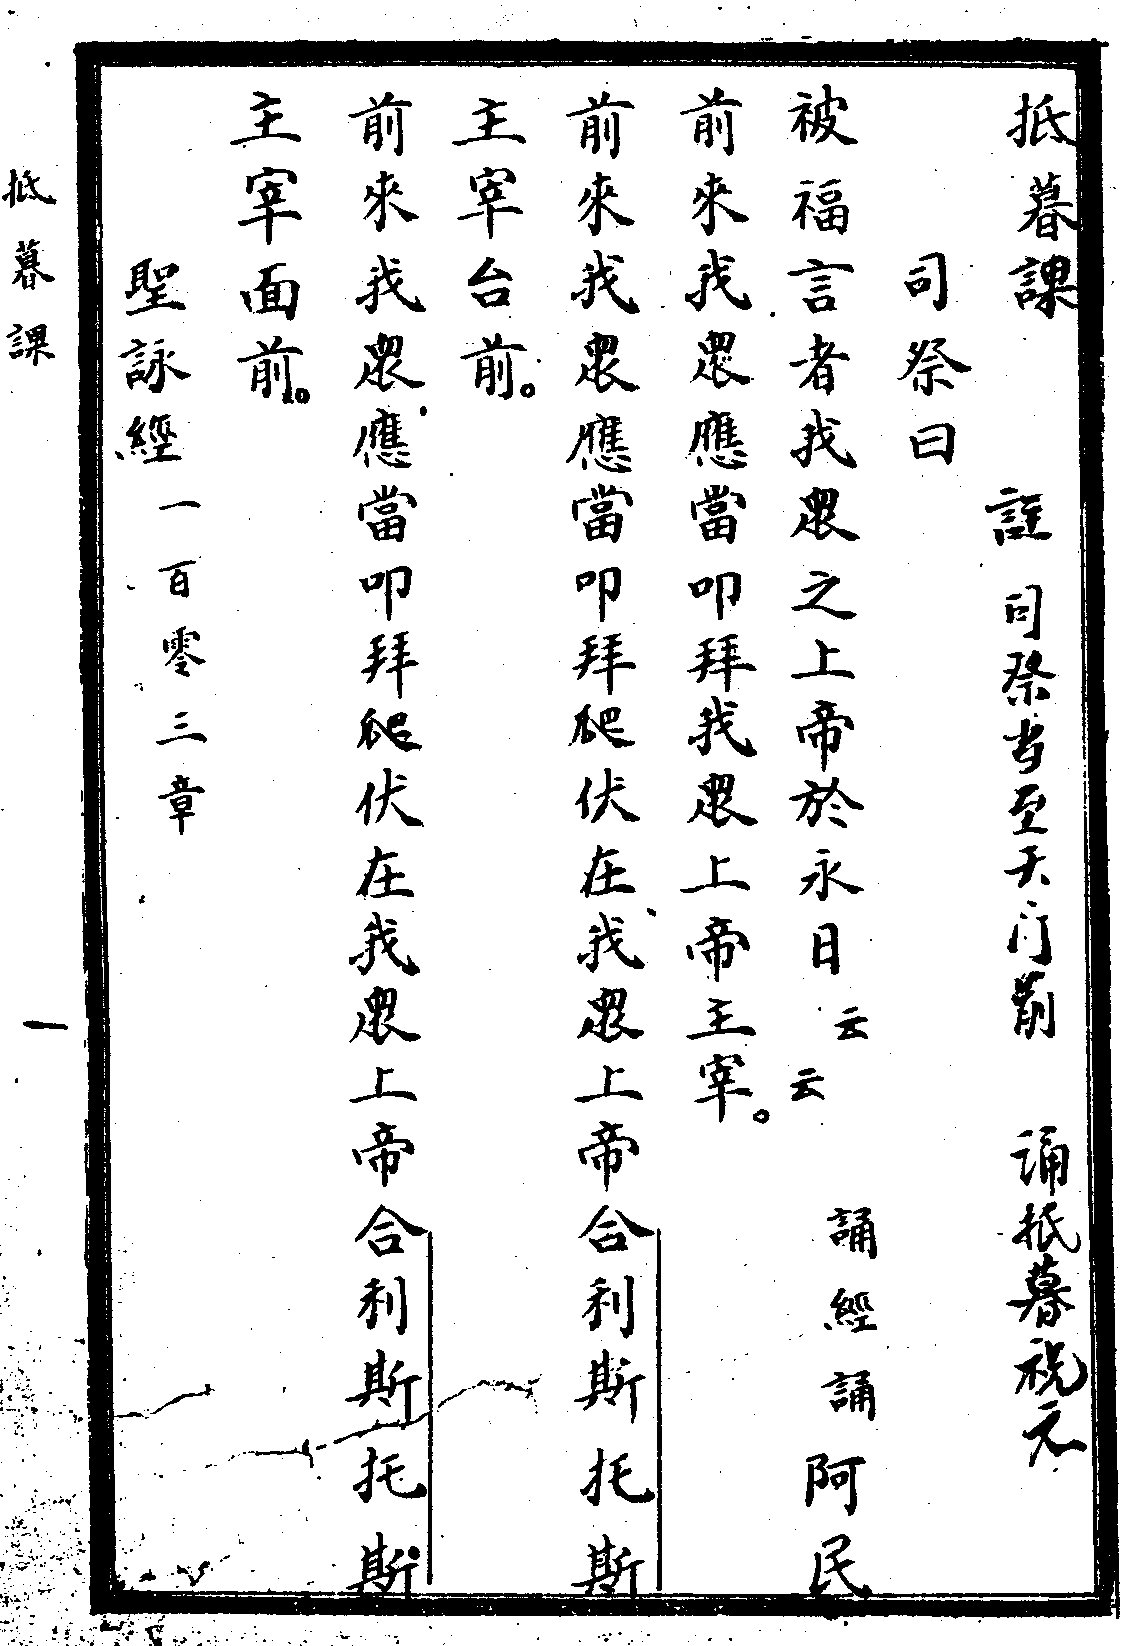 抵暮課
註 司祭当至天门前 誦抵暮祝文
司祭曰
被福言者我眾之上帝於永日云云 誦經誦阿民
前來我眾應當叩拜我眾上帝主宰。
前來我眾應當叩拜爬伏在我眾上帝合利斯托斯
主宰台前。
前來我眾應當叩拜爬伏在我眾上帝合利斯托斯
主宰面前。
聖詠經一百零三章
抵暮課
一